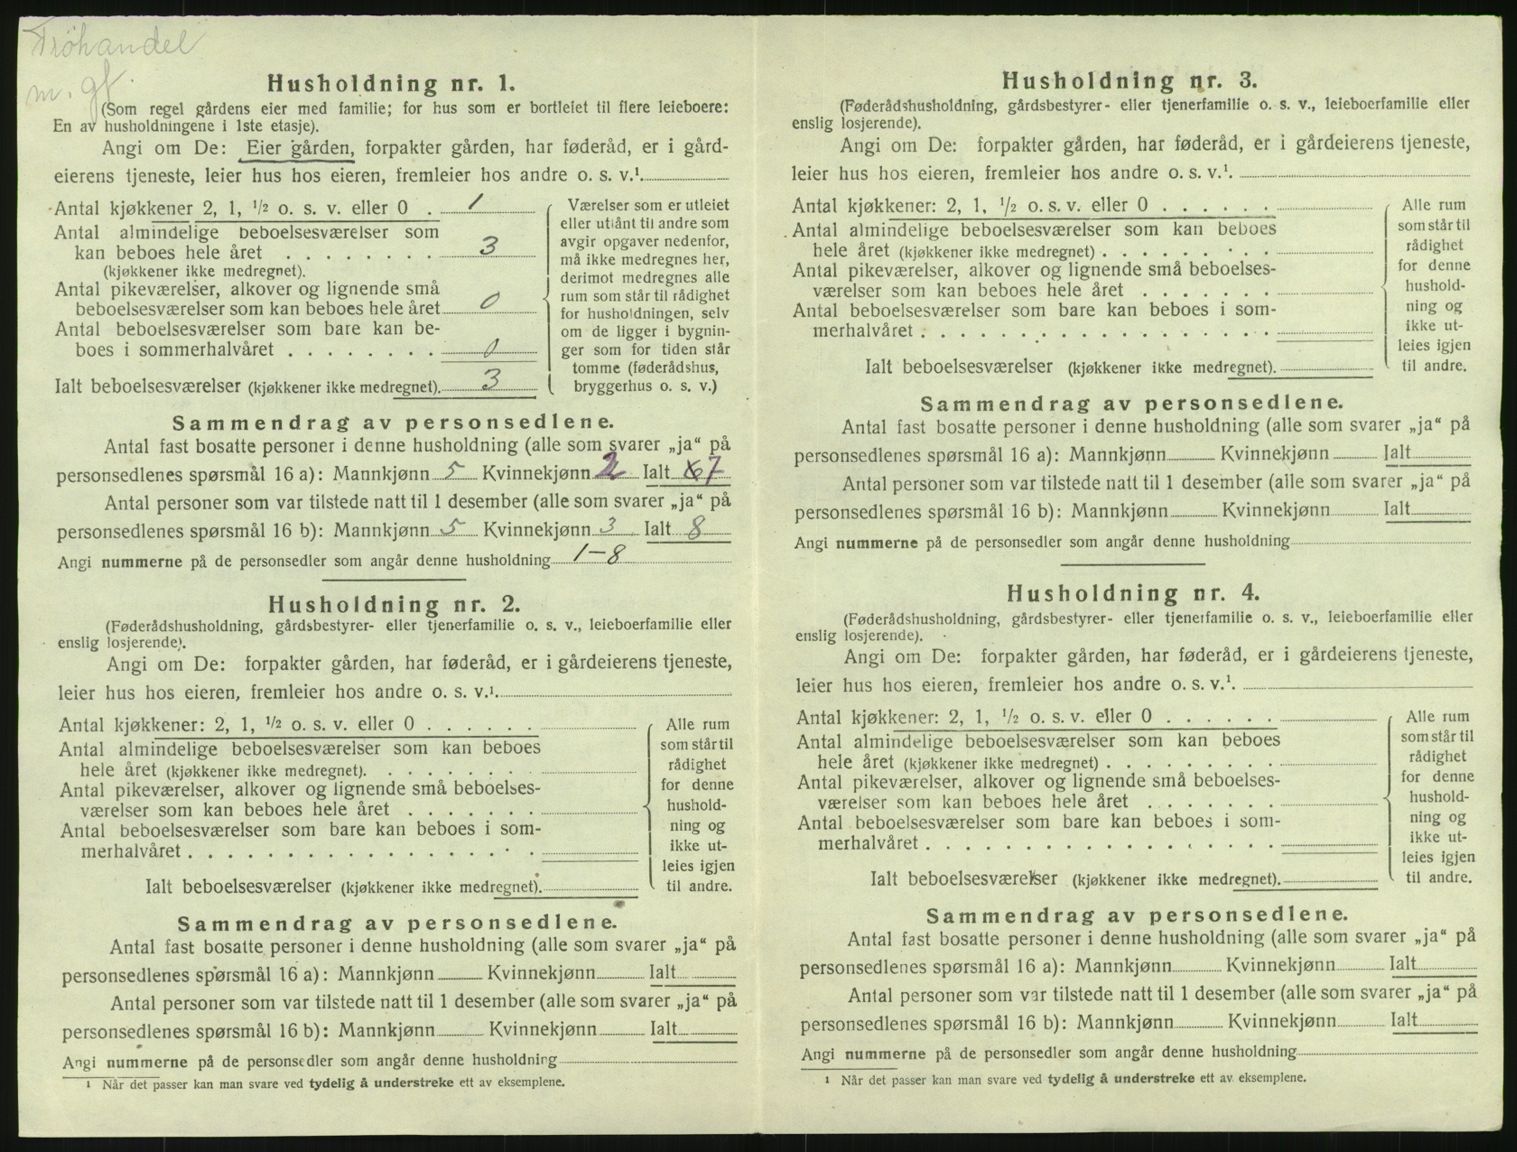 Frøhandel
m. gf.
Husholdning nr. 1.
(Som regel gårdens eier med familie; for hus som er bortleiet til flere leieboere:
En av husholdningene i 1ste etasje).
Angi om De: Eier gården, forpakter gården, har føderåd, er i gård-
eierens tjeneste, leier hus hos eieren, fremleier hos andre o. s. v.¹.
Antal kjøkkener 2, 1, ½ o. s. v. eller 0 . 1
Antal almindelige beboelsesværelser som
kan beboes hele året . . . . . . . . 3
(kjøkkener ikke medregnet).
Antal pikeværelser, alkover og lignende små
beboelsesværelser som kan beboes hele året 0
Antal beboelsesværelser som bare kan be-
boes i sommerhalvåret . . . . . . . . 0
Ialt beboelsesværelser (kjøkkener ikke medregnet). 3
Værelser som er utleiet
eller utlånt til andre som
avgir opgaver nedenfor,
må ikke medregnes her,
derimot medregnes alle
rum som står til rådighet
for husholdningen, selv
om de ligger i bygnin-
ger som for tiden står
tomme (føderådshus,
bryggerhus o. s. v.)
Sammendrag av personsedlene.
Antal fast bosatte personer i denne husholdning (alle som svarer „ja“ på
personsedlenes spørsmål 16 a): Mannkjønn 5 Kvinnekjønn 2 Ialt 7
Antal personer som var tilstede natt til 1 desember (alle som svarer „ja“ på
personsedlenes spørsmål 16 b): Mannkjønn 5 Kvinnekjønn 3 Ialt 8
Angi nummerne på de personsedler som angår denne husholdning 1-8
Husholdning nr. 2.
(Føderådshusholdning, gårdsbestyrer- eller tjenerfamilie o. s. v., leieboerfamilie eller
enslig losjerende).
Angi om De: forpakter gården, har føderåd, er i gårdeierens tjeneste,
leier hus hos eieren, fremleier hos andre o. s. v.¹.
Antal kjøkkener: 2, 1, ½ o. s. v. eller 0 . . . . . .
Antal almindelige beboelsesværelser som kan beboes
hele året (kjøkkener ikke medregnet). . . . . . . . .
Antal pikeværelser, alkover og lignende små beboelses-
værelser som kan beboes hele året . . . . . . .
Antal beboelsesværelser som bare kan beboes i som-
merhalvåret . . . . . . . . . . . . . . . . . .
Ialt beboelsesværelser (kjøkkener ikke medregnet).
Alle rum
som står til
rådighet
for denne
hushold-
ning og
ikke ut-
leies igjen
til andre.
Sammendrag av personsedlene.
Antal fast bosatte personer i denne husholdning (alle som svarer „ja“ på
personsedlenes spørsmål 16 a): Mannkjønn Kvinnekjønn Ialt
Antal personer som var tilstede natt til 1 desember (alle som svarer „ja“ på
personsedlenes spørsmål 16 b): Mannkjønn Kvinnekjønn Ialt
Angi nummerne på de personsedler som angår denne husholdning
¹ Når det passer kan man svare ved tydelig å understreke ett av eksemplene.
Husholdning nr. 3.
(Føderådshusholdning, gårdsbestyrer- eller tjenerfamilie o. s. v., leieboerfamilie eller
enslig losjerende).
Angi om De: forpakter gården, har føderåd, er i gårdeierens tjeneste,
leier hus hos eieren, fremleier hos andre o. s. v.¹.
Antal kjøkkener: 2, 1, ½ o. s. v. eller 0 . . . . . .
Antal almindelige beboelsesværelser som kan beboes
hele året (kjøkkener ikke medregnet) . . . . . . . . .
Antal pikeværelser, alkover og lignende små beboelses-
værelser som kan beboes hele året . . . . . . .
Antal beboelsesværelser som bare kan beboes i som-
merhalvåret . . . . . . . . . . . . . . . . . .
Ialt beboelsesværelser (kjøkkener ikke medregnet).
Alle rum
som står til
rådighet
for denne
hushold-
ning og
ikke ut-
leies igjen
til andre.
Sammendrag av personsedlene.
Antal fast bosatte personer i denne husholdning (alle som svarer „ja“ på
personsedlenes spørsmål 16 a): Mannkjønn Kvinnekjønn Ialt
Antal personer som var tilstede natt til 1 desember (alle som svarer „ja“ på
personsedlenes spørsmål 16 b): Mannkjønn Kvinnekjønn Ialt
Angi nummerne på de personsedler som angår denne husholdning
Husholdning nr. 4.
(Føderådshusholdning, gårdsbestyrer- eller tjenerfamilie o. s. v., leieboerfamilie eller
enslig losjerende).
Angi om De: forpakter gården, har føderåd, er i gårdeierens tjeneste,
leier hus hos eieren, fremleier hos andre o. s. v.¹.
Antal kjøkkener: 2, 1, ½ o. s. v. eller 0 . . . . . .
Antal almindelige beboelsesværelser som kan beboes
hele året (kjøkkener ikke medregnet) . . . . . . . . .
Antal pikeværelser, alkover og lignende små beboelses-
værelser som kan beboes hele året . . . . . . .
Antal beboelsesværelser som bare kan beboes i som-
merhalvåret . . . . . . . . . . . . . . . . . .
Ialt beboelsesværelser (kjøkkener ikke medregnet).
Alle rum
som står til
rådighet
for denne
hushold-
ning og
ikke ut-
leies igjen
til andre.
Sammendrag av personsedlene.
Antal fast bosatte personer i denne husholdning (alle som svarer „ja“ på
personsedlenes spørsmål 16 a): Mannkjønn Kvinnekjønn Ialt
Antal personer som var tilstede natt til 1 desember (alle som svarer „ja“ på
personsedlenes spørsmål 16 b): Mannkjønn Kvinnekjønn Ialt
Angi nummerne på de personsedler som angår denne husholdning
¹ Når det passer kan man svare ved tydelig å understreke ett av eksemplene.